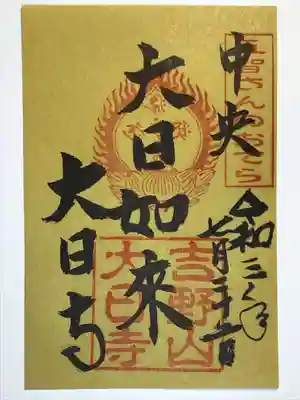 五智さんのおてら
中央
令和三年
七月
大日如來
大日寺
吉野山
大日寺